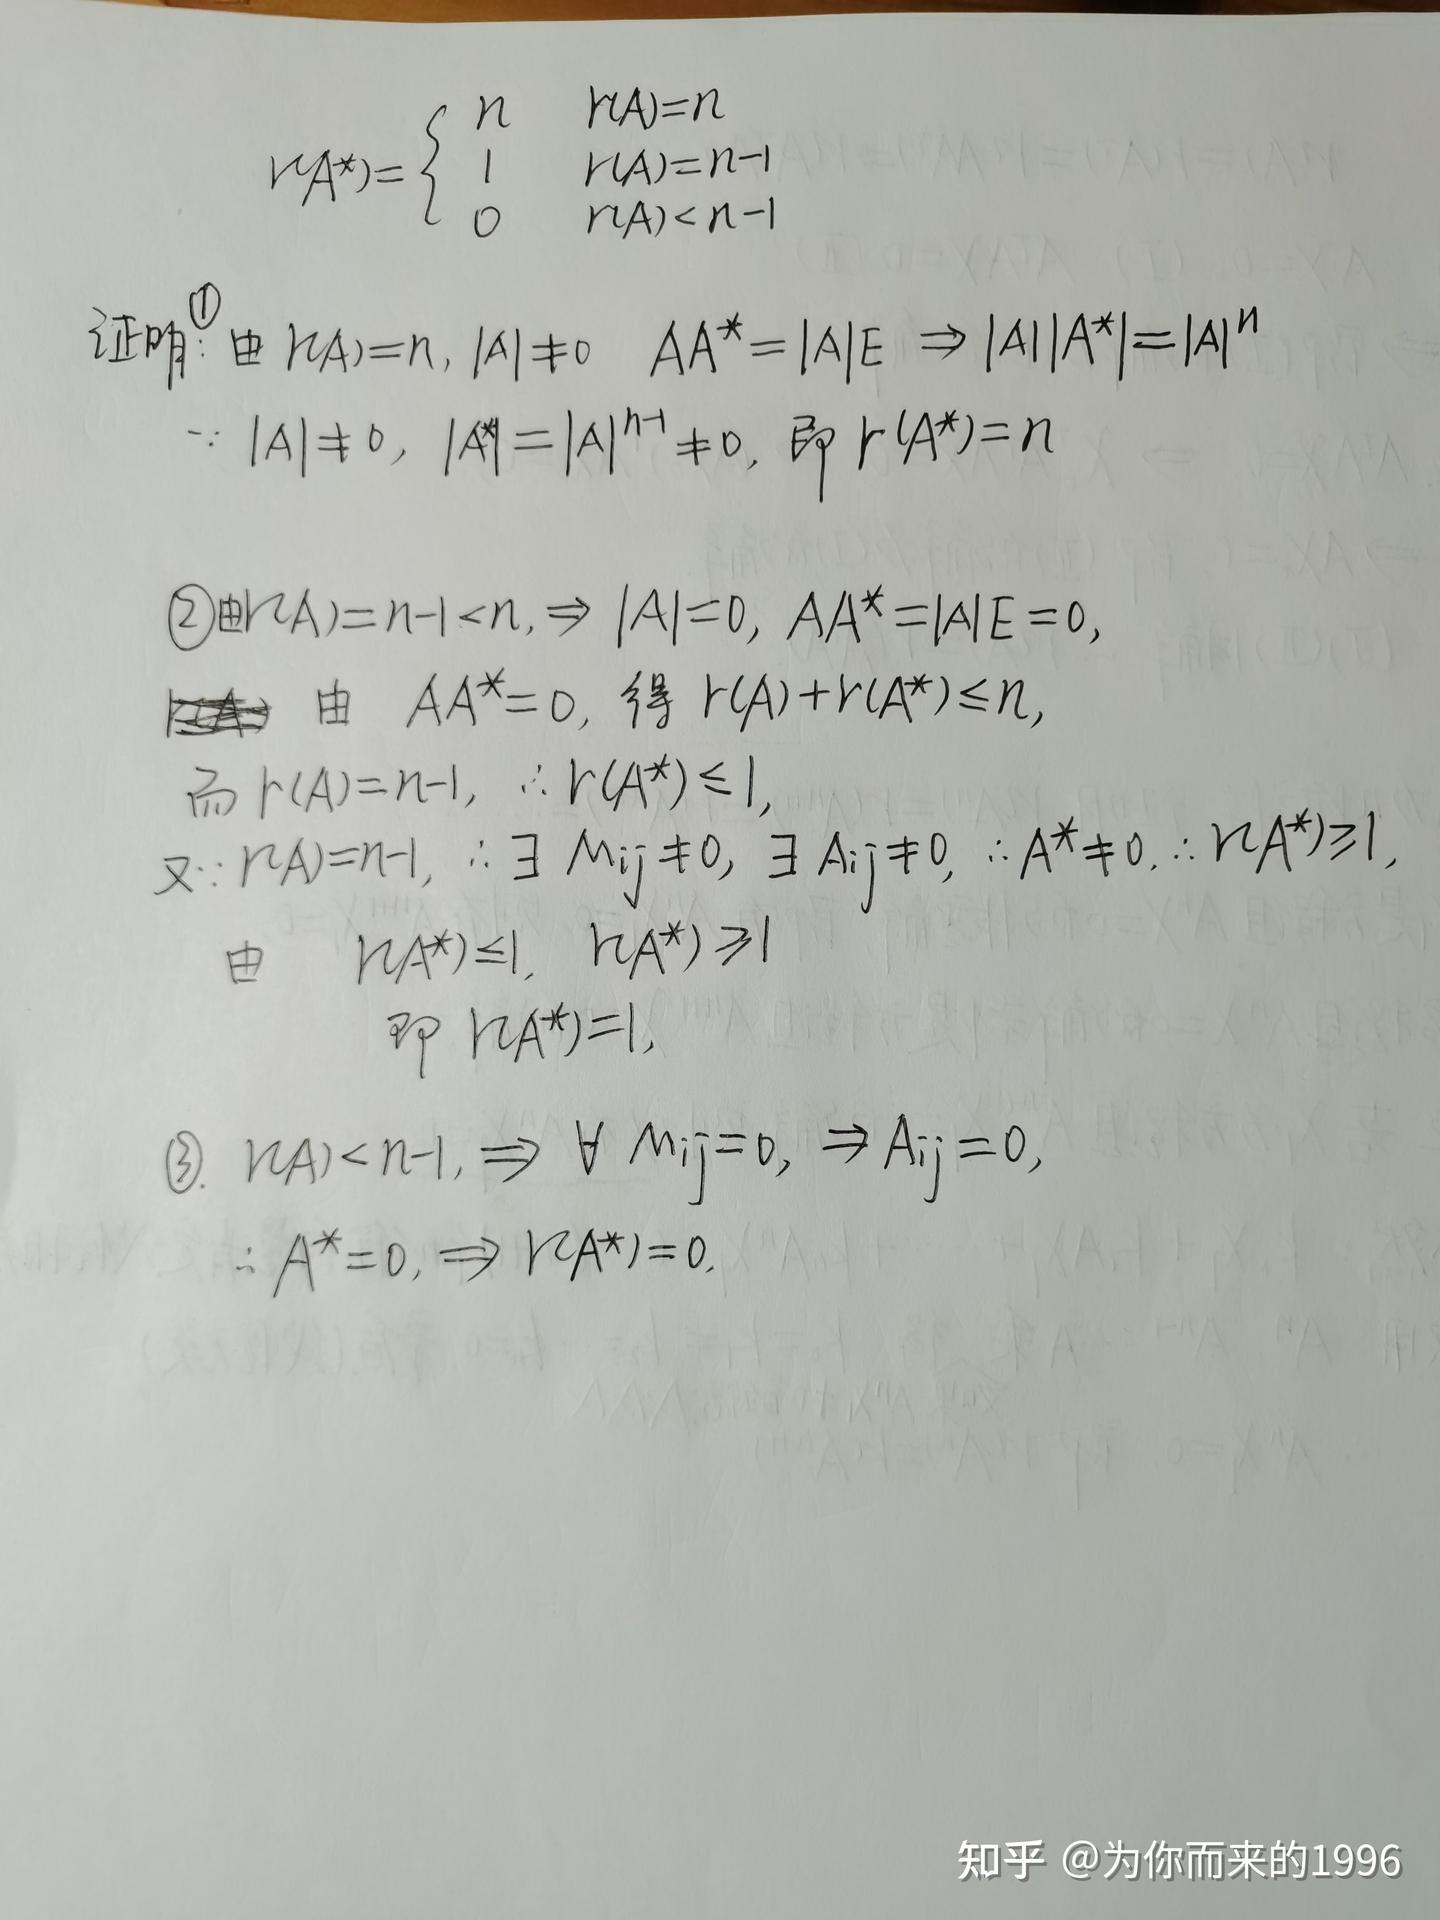 r(A*)= { n  r(A)=n
1  r(A)=n-1
0  r(A)<n-1
证明:① 由 r(A)=n, |A|≠0  AA*=|A|E ⇒ |A||A*|=|A|ⁿ
∵ |A|≠0, |A*|=|A|ⁿ⁻¹≠0, 即 r(A*)=n
②由r(A)=n-1<n, ⇒ |A|=0, AA*=|A|E=0,
由 AA*=0, 得 r(A)+r(A*)≤n,
而 r(A)=n-1, ∴ r(A*)≤1,
又∵ r(A)=n-1, ∴ ∃ Mij≠0, ∃ Aij≠0, ∴ A*≠0. ∴ r(A*)≥1,
由 r(A*)≤1, r(A*)≥1
即 r(A*)=1,
③. r(A)<n-1, ⇒ ∀ Mij=0, ⇒ Aij=0,
∴ A*=0, ⇒ r(A*)=0.
知乎 @为你而来的1996